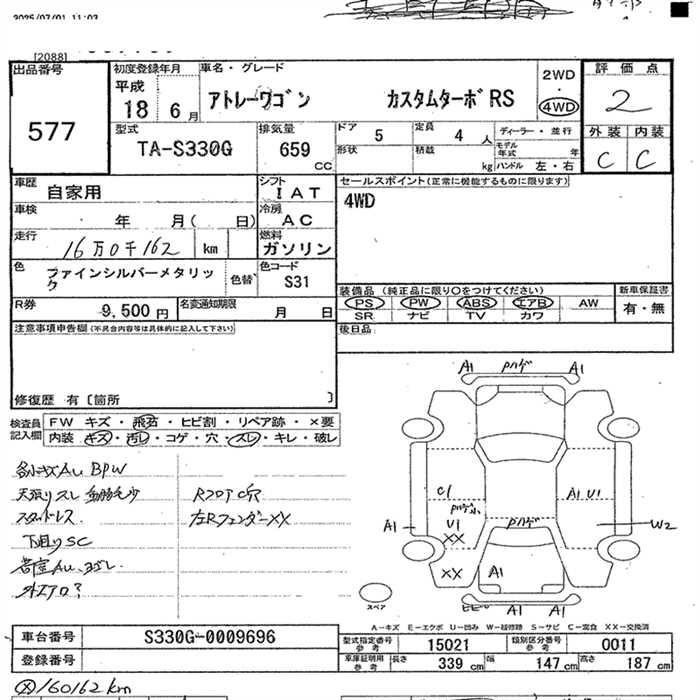 2025/07/01 11:03
[2088]
出品番号
577
初度登録年月
平成
18 6月
車名・グレード
アトレーワゴン カスタムターボRS
2WD
4WD
評価点
2
外装 内装
C C
型式
TA-S330G
排気量
659 CC
ドア 5
定員 4 人
形状
積載 kg
ディーラー・並行
モデル年式 年
ハンドル 左・右
車歴
自家用
シフト
IAT
車検
年 月( 日)
冷房
AC
走行
16万0千162 km
燃料
ガソリン
色
ファインシルバーメタリック
色替
色コード
S31
セールスポイント(正常に機能するものに限ります)
4WD
R券
9,500円
名変通知期限
月 日
装備品(純正品に限り○をつけてください)
PS PW ABS エアB AW
SR ナビ TV カワ
新車保証書
有・無
後日品
注意事項申告欄(不具合内容等は具体的に記入して下さい)
修復歴 有〔箇所 〕
検査員記入欄
FW キズ・飛石・ヒビ割・リペア跡・×要
内装 キズ・汚レ・コゲ・穴・スレ・キレ・破レ
各小キズAU BPW
天張りスレ
スタッドレス
下廻りSC
外エアロ?
RフロアC穴
左RフェンダーXX
A1 A1
C1
A1 U1
U1
XX
A1
W2
XX
A1
A1 A1
スペア
A-キズ E-エクボ U-凹み W-補修跡 S-サビ C-腐食 XX-交換済
車台番号
S330G-0009696
登録番号
型式指定番号 参考 15021
類別区分番号 参考 0011
車庫証明用 参考 長さ 339 cm 幅 147 cm 高さ 187 cm
160162km